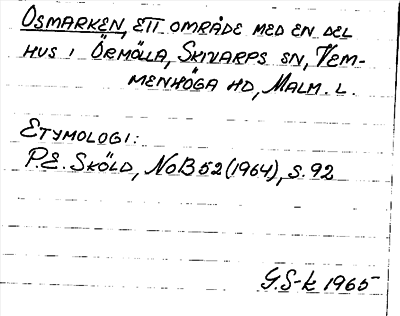 OSMARKEN, ETT OMRÅDE MED EN DEL
HUS I ÖRMÖLLA, SKIVARPS SN, VEM-
MENHÖGA HD, MALM. L.
ETYMOLOGI:
P.E. SKÖLD, NoB 52 (1964), S. 92
G.S-k 1965